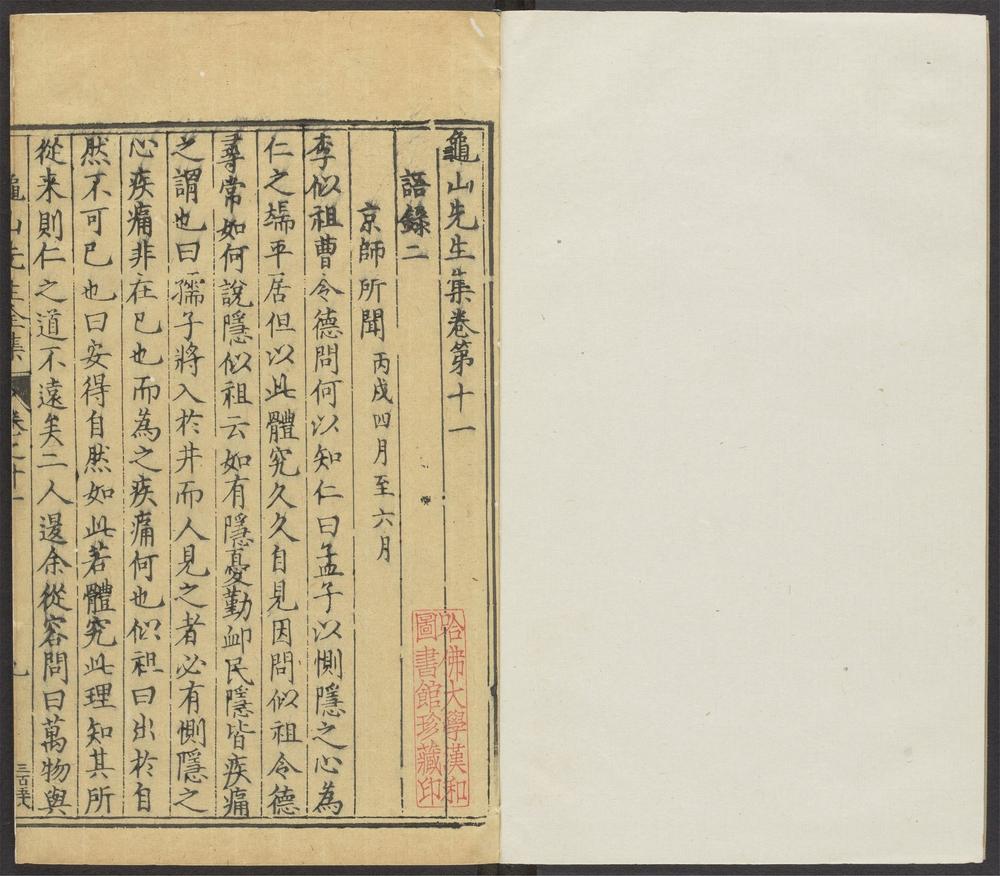 龜山先生集卷第十一
語錄二
京師所聞 丙戌四月至六月
李似祖曹令德問何以知仁曰孟子以惻隱之心為
仁之端平居但以此體究久久自見因問似祖令德
尋常如何說隱似祖云如有隱憂勤卹民隱皆疾痛
之謂也曰孺子將入於井而人見之者必有惻隱之
心疾痛非在己也而為之疾痛何也似祖曰出於自
然不可已也曰安得自然如此若體究此理知其所
從来則仁之道不遠矣二人退余從容問曰萬物與
龜山先生全集 卷之十一
哈佛大學漢和
圖書館珍藏印